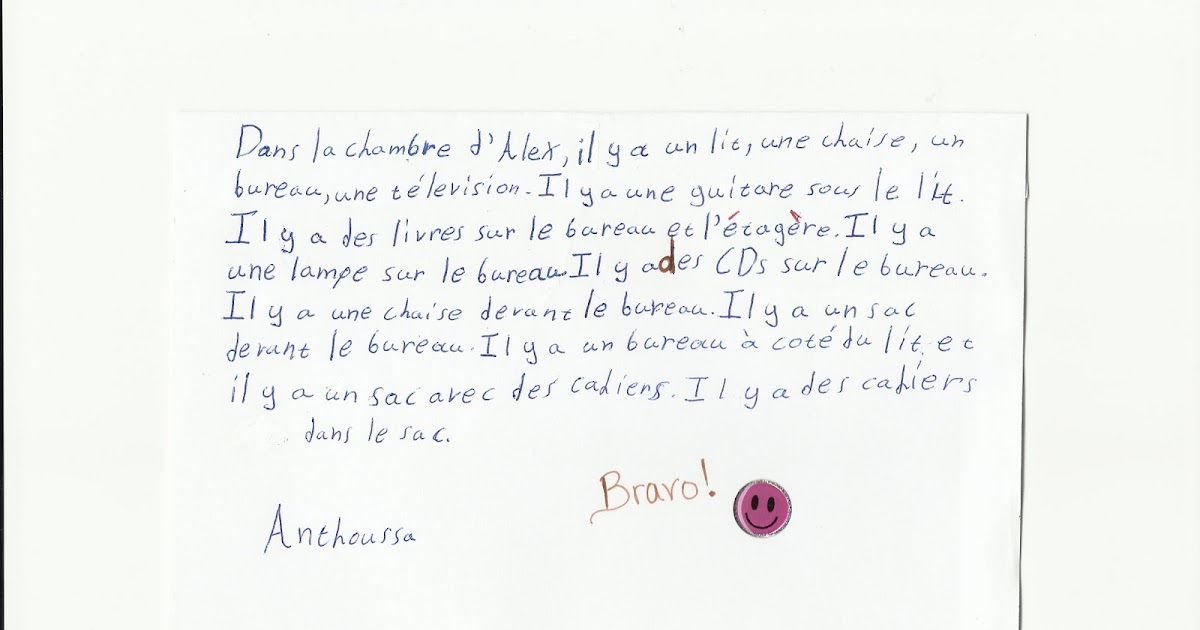 Dans la chambre d'Alex, il y a un lit, une chaise, un
bureau, une télevision. Il y a une guitare sous le lit.
Il y a des livres sur le bureau et l'étagère. Il y a
une lampe sur le bureau. Il y a des CDs sur le bureau.
Il y a une chaise devant le bureau. Il y a un sac
devant le bureau. Il y a un bureau à coté du lit et
il y a un sac avec des cahiers. Il y a des cahiers
dans le sac.
Bravo!
Anthoussa